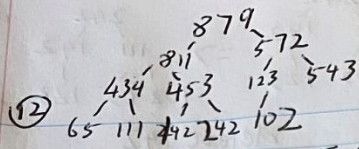 879
811 572
434 453 123 543
12 65 111 142 242 102